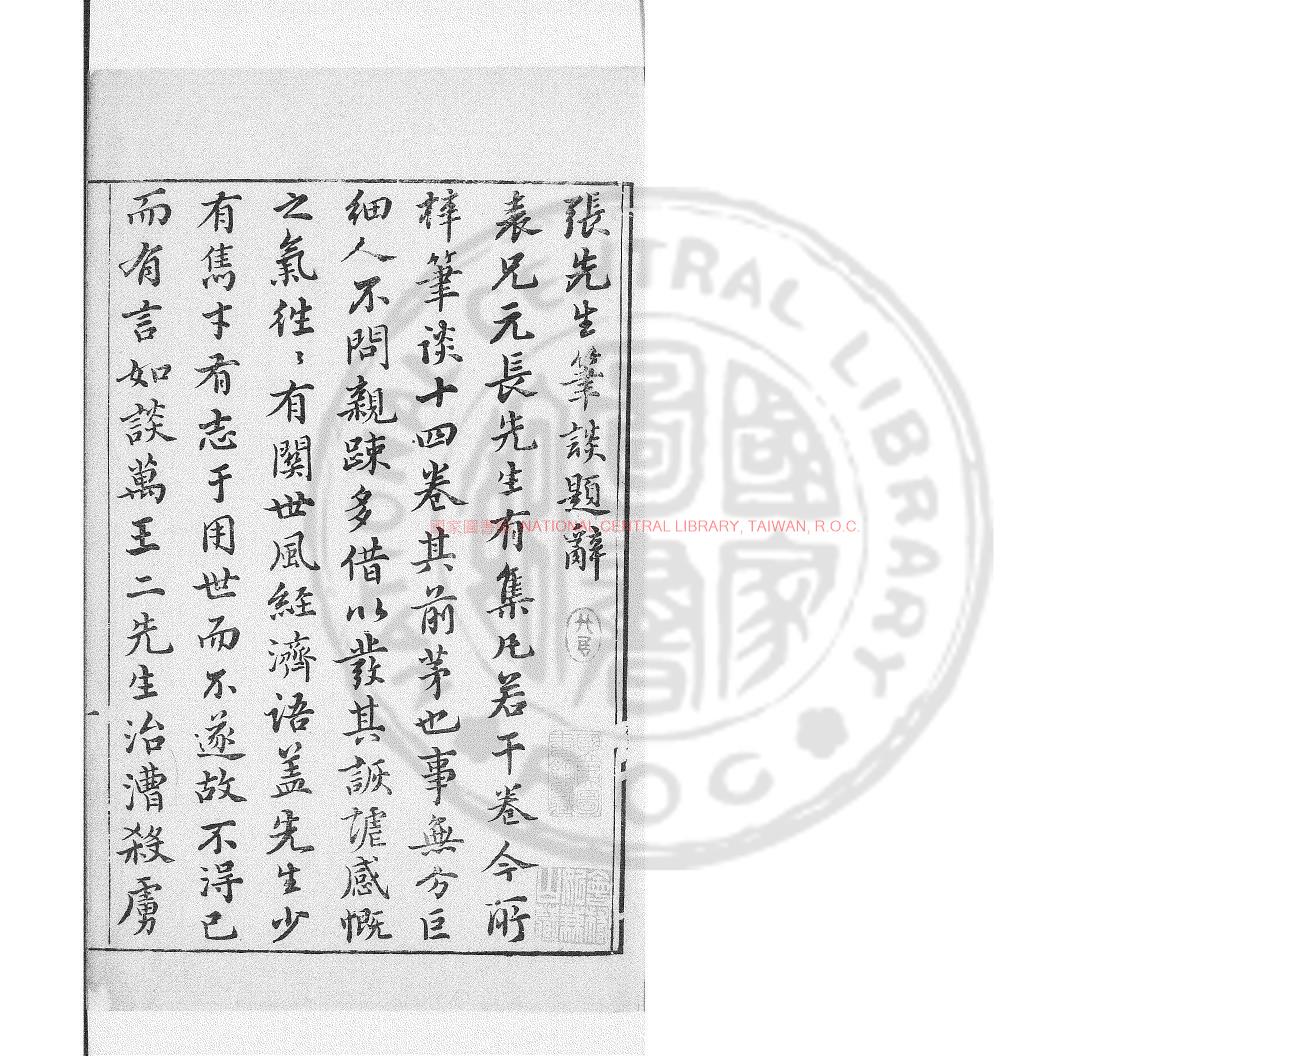 張先生筆談題辭
袁兄元長先生有集凡若干卷今所
梓筆談十四卷其前茅也事無分巨
細人不問親踈多借以發其詼謔感慨
之氣徃〻有關世風經濟語盖先生少
有雋才有志于用世而不遂故不得已
而有言如談萬王二先生治漕殺虜
國家圖書館 NATIONAL CENTRAL LIBRARY, TAIWAN, R.O.C.
NATIONAL CENTRAL LIBRARY
R.O.C